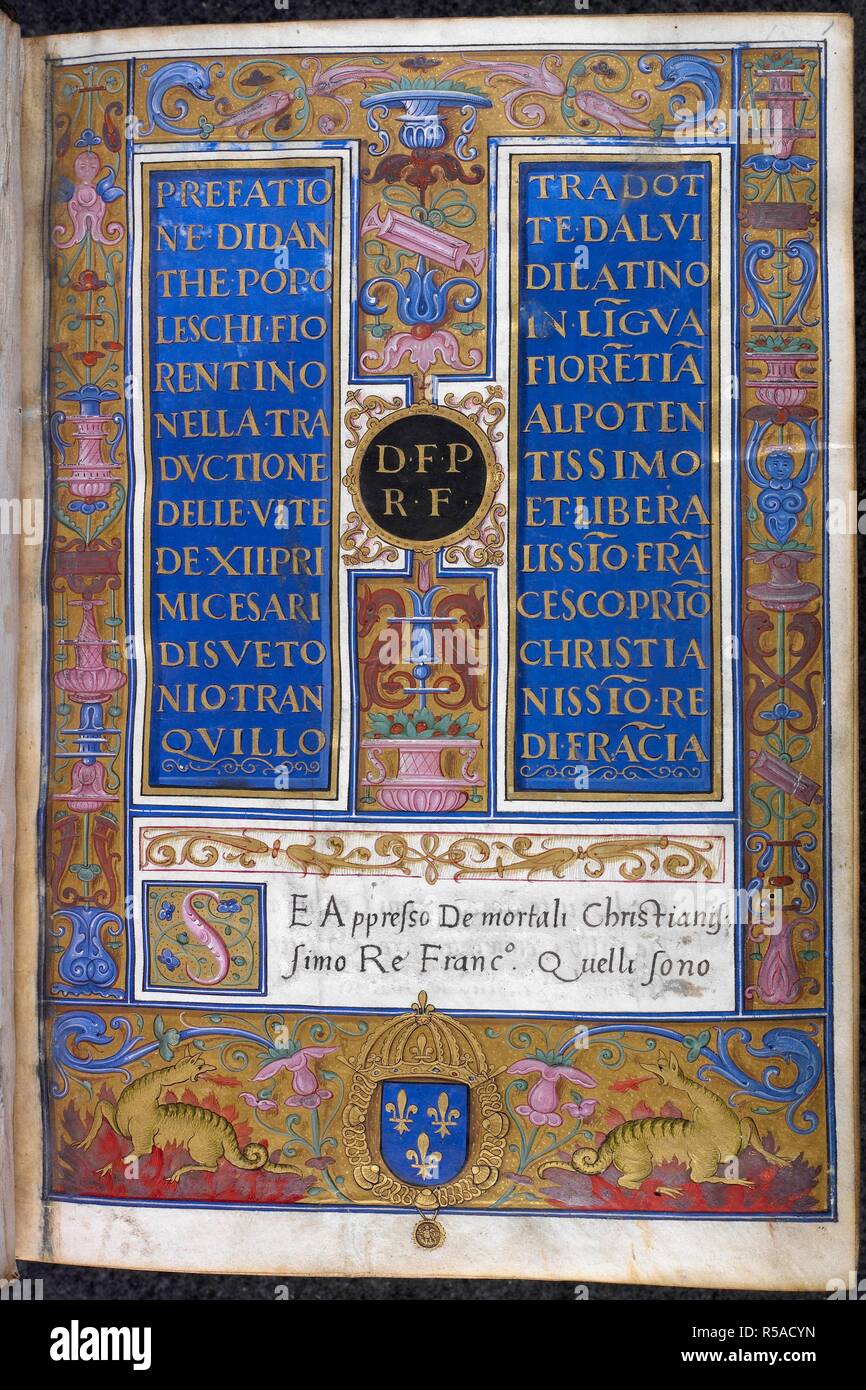 PREFATIO
NE·DIDAN
THE·POPO
LESCHI·FIO
RENTINO
NELLA·TRA
DVCTIONE
DELLE·VITE
DE·XII·PRI
MI·CESARI
DI·SVETO
NIO·TRAN
QVILLO
D·F·P
R·F·
TRADOT
TE·DALVI
DI·LATINO
IN·LĪGVA
FIORĒTIĀ
AL·POTEN
TISSIMO
ET·LIBERA
LISSĪO·FRĀ
CESCO·PRĪO
CHRISTIA
NISSĪO·RE
DI·FRĀCIA
SE Appresso De mortali Christianis,
simo Re Francº. Quelli sono
alamy
Image ID: R5ACYN
www.alamy.com